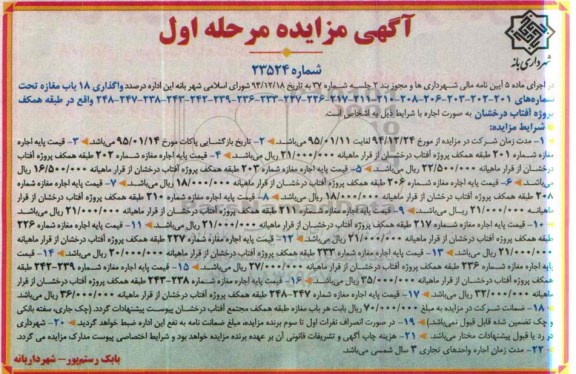 آگهی مزایده مرحله اول
شهرداری بانه
شماره ۲۳۵۲۴
در اجرای ماده ۵ آیین نامه مالی شهرداری ها و مجوز بند ۲ جلسه شماره ۳۷ به تاریخ ۹۴/۱۲/۱۸ شورای اسلامی شهر بانه این اداره درصدد واگذاری ۱۸ باب مغازه تحت
شماره‌های ۲۰۱-۲۰۲-۲۰۳-۲۰۶-۲۰۸-۲۱۰-۲۱۱-۲۱۷-۲۲۶-۲۲۷-۲۳۳-۲۳۶-۲۳۹-۲۴۲-۲۴۳-۲۳۸-۲۴۷-۲۴۸ واقع در طبقه همکف
پروژه آفتاب درخشان به صورت اجاره با شرایط ذیل به اشخاص است.
شرایط مزایده:
۱- مدت زمان شرکت در مزایده از مورخ ۹۴/۱۲/۲۴ لغایت ۹۵/۰۱/۱۱ می‌باشد. ۲- تاریخ بازگشایی پاکات مورخ ۹۵/۰۱/۱۴ می‌باشد. ۳- قیمت پایه اجاره
مغازه شماره ۲۰۱ طبقه همکف پروژه آفتاب درخشان از قرار ماهیانه ۲۱/۰۰۰/۰۰۰ ریال می‌باشد. ۴- قیمت پایه اجاره مغازه شماره ۲۰۲ طبقه همکف پروژه آفتاب
درخشان از قرار ماهیانه ۲۲/۵۰۰/۰۰۰ ریال می‌باشد. ۵- قیمت پایه اجاره مغازه شماره ۲۰۳ طبقه همکف پروژه آفتاب درخشان از قرار ماهیانه ۱۶/۵۰۰/۰۰۰ ریال
می‌باشد. ۶- قیمت پایه اجاره مغازه شماره ۲۰۶ طبقه همکف پروژه آفتاب درخشان از قرار ماهیانه ۱۸/۰۰۰/۰۰۰ ریال می‌باشد. ۷- قیمت پایه اجاره مغازه شماره
۲۰۸ طبقه همکف پروژه آفتاب درخشان از قرار ماهیانه ۱۸/۰۰۰/۰۰۰ ریال می‌باشد. ۸- قیمت پایه اجاره مغازه شماره ۲۱۰ طبقه همکف پروژه آفتاب درخشان از قرار
ماهیانه ۲۱/۰۰۰/۰۰۰ ریال می‌باشد. ۹- قیمت پایه اجاره مغازه شماره ۲۱۱ طبقه همکف پروژه آفتاب درخشان از قرار ماهیانه ۲۱/۰۰۰/۰۰۰ ریال می‌باشد.
۱۰- قیمت پایه اجاره مغازه شماره ۲۱۷ طبقه همکف پروژه آفتاب درخشان از قرار ماهیانه ۲۱/۰۰۰/۰۰۰ ریال می‌باشد. ۱۱- قیمت پایه اجاره مغازه شماره ۲۲۶
طبقه همکف پروژه آفتاب درخشان از قرار ماهیانه ۲۱/۰۰۰/۰۰۰ ریال می‌باشد. ۱۲- قیمت پایه اجاره مغازه شماره ۲۲۷ طبقه همکف پروژه آفتاب درخشان از قرار ماهیانه
۲۱/۰۰۰/۰۰۰ ریال می‌باشد. ۱۳- قیمت پایه اجاره مغازه شماره ۲۳۳ طبقه همکف پروژه آفتاب درخشان از قرار ماهیانه ۳۰/۰۰۰/۰۰۰ ریال می‌باشد. ۱۴- قیمت
پایه اجاره مغازه شماره ۲۳۶ طبقه همکف پروژه آفتاب درخشان از قرار ماهیانه ۲۷/۰۰۰/۰۰۰ ریال می‌باشد. ۱۵- قیمت پایه اجاره مغازه شماره ۲۳۹-۲۴۲ طبقه
همکف پروژه آفتاب درخشان از قرار ماهیانه ۳۵/۰۰۰/۰۰۰ ریال می‌باشد. ۱۶- قیمت پایه اجاره مغازه شماره ۲۳۸-۲۴۳ طبقه همکف پروژه آفتاب درخشان از قرار
ماهیانه ۳۲/۰۰۰/۰۰۰ ریال می‌باشد. ۱۷- قیمت پایه اجاره مغازه شماره ۲۴۷-۲۴۸ طبقه همکف پروژه آفتاب درخشان از قرار ماهیانه ۳۶/۰۰۰/۰۰۰ ریال می‌باشد.
۱۸- ضمانت شرکت در مزایده به مبلغ ۷۰/۰۰۰/۰۰۰ ریال بابت هر باب مغازه طبقه همکف مجتمع آفتاب درخشان پیوست پیشنهادات گردد. (چک جاری، سفته بانکی
و چک تضمین شده قابل قبول نمی‌باشد) ۱۹- در صورت انصراف نفرات اول تا سوم برنده مزایده، مبلغ ضمانت نامه به نفع این اداره ضبط خواهد گردید. ۲۰- شهرداری
در رد یا قبول پیشنهادات مختار می‌باشد. ۲۱- هزینه چاپ آگهی و تشریفات قانونی آن بر عهده برنده مزایده خواهد بود و شرایط اختصاصی پیوست مدارک مزایده می گردد.
۲۲- مدت زمان اجاره واحدهای تجاری ۳ سال شمسی می‌باشد.
بابک رستم‌پور- شهردار بانه